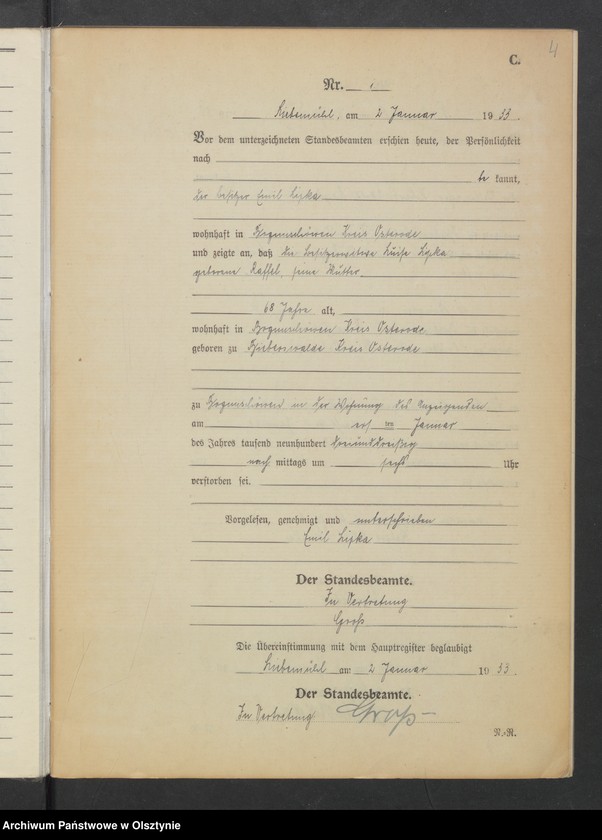 4
C.
Nr. 1
Liebemühl, am 2 Januar 1933.
Vor dem unterzeichneten Standesbeamten erschien heute, der Persönlichkeit
nach
be kannt,
der Besitzer Emil Lipka
wohnhaft in Kreis Osterode
und zeigte an, daß die Besitzerwitwe Luise Lipka
geborene Raffel, seine Mutter
68 Jahre alt,
wohnhaft in Kreis Osterode
geboren zu Kreis Osterode
zu in der Wohnung des Anzeigenden
am ersten Januar
des Jahres tausend neunhundert dreiunddreißig
nach mittags um sechs Uhr
verstorben sei.
Vorgelesen, genehmigt und unterschrieben
Emil Lipka
Der Standesbeamte.
In Vertretung
Groß
Die Übereinstimmung mit dem Hauptregister beglaubigt
Liebemühl am 2 Januar 1933.
Der Standesbeamte.
In Vertretung Groß
N.-R.
Archiwum Państwowe w Olsztynie